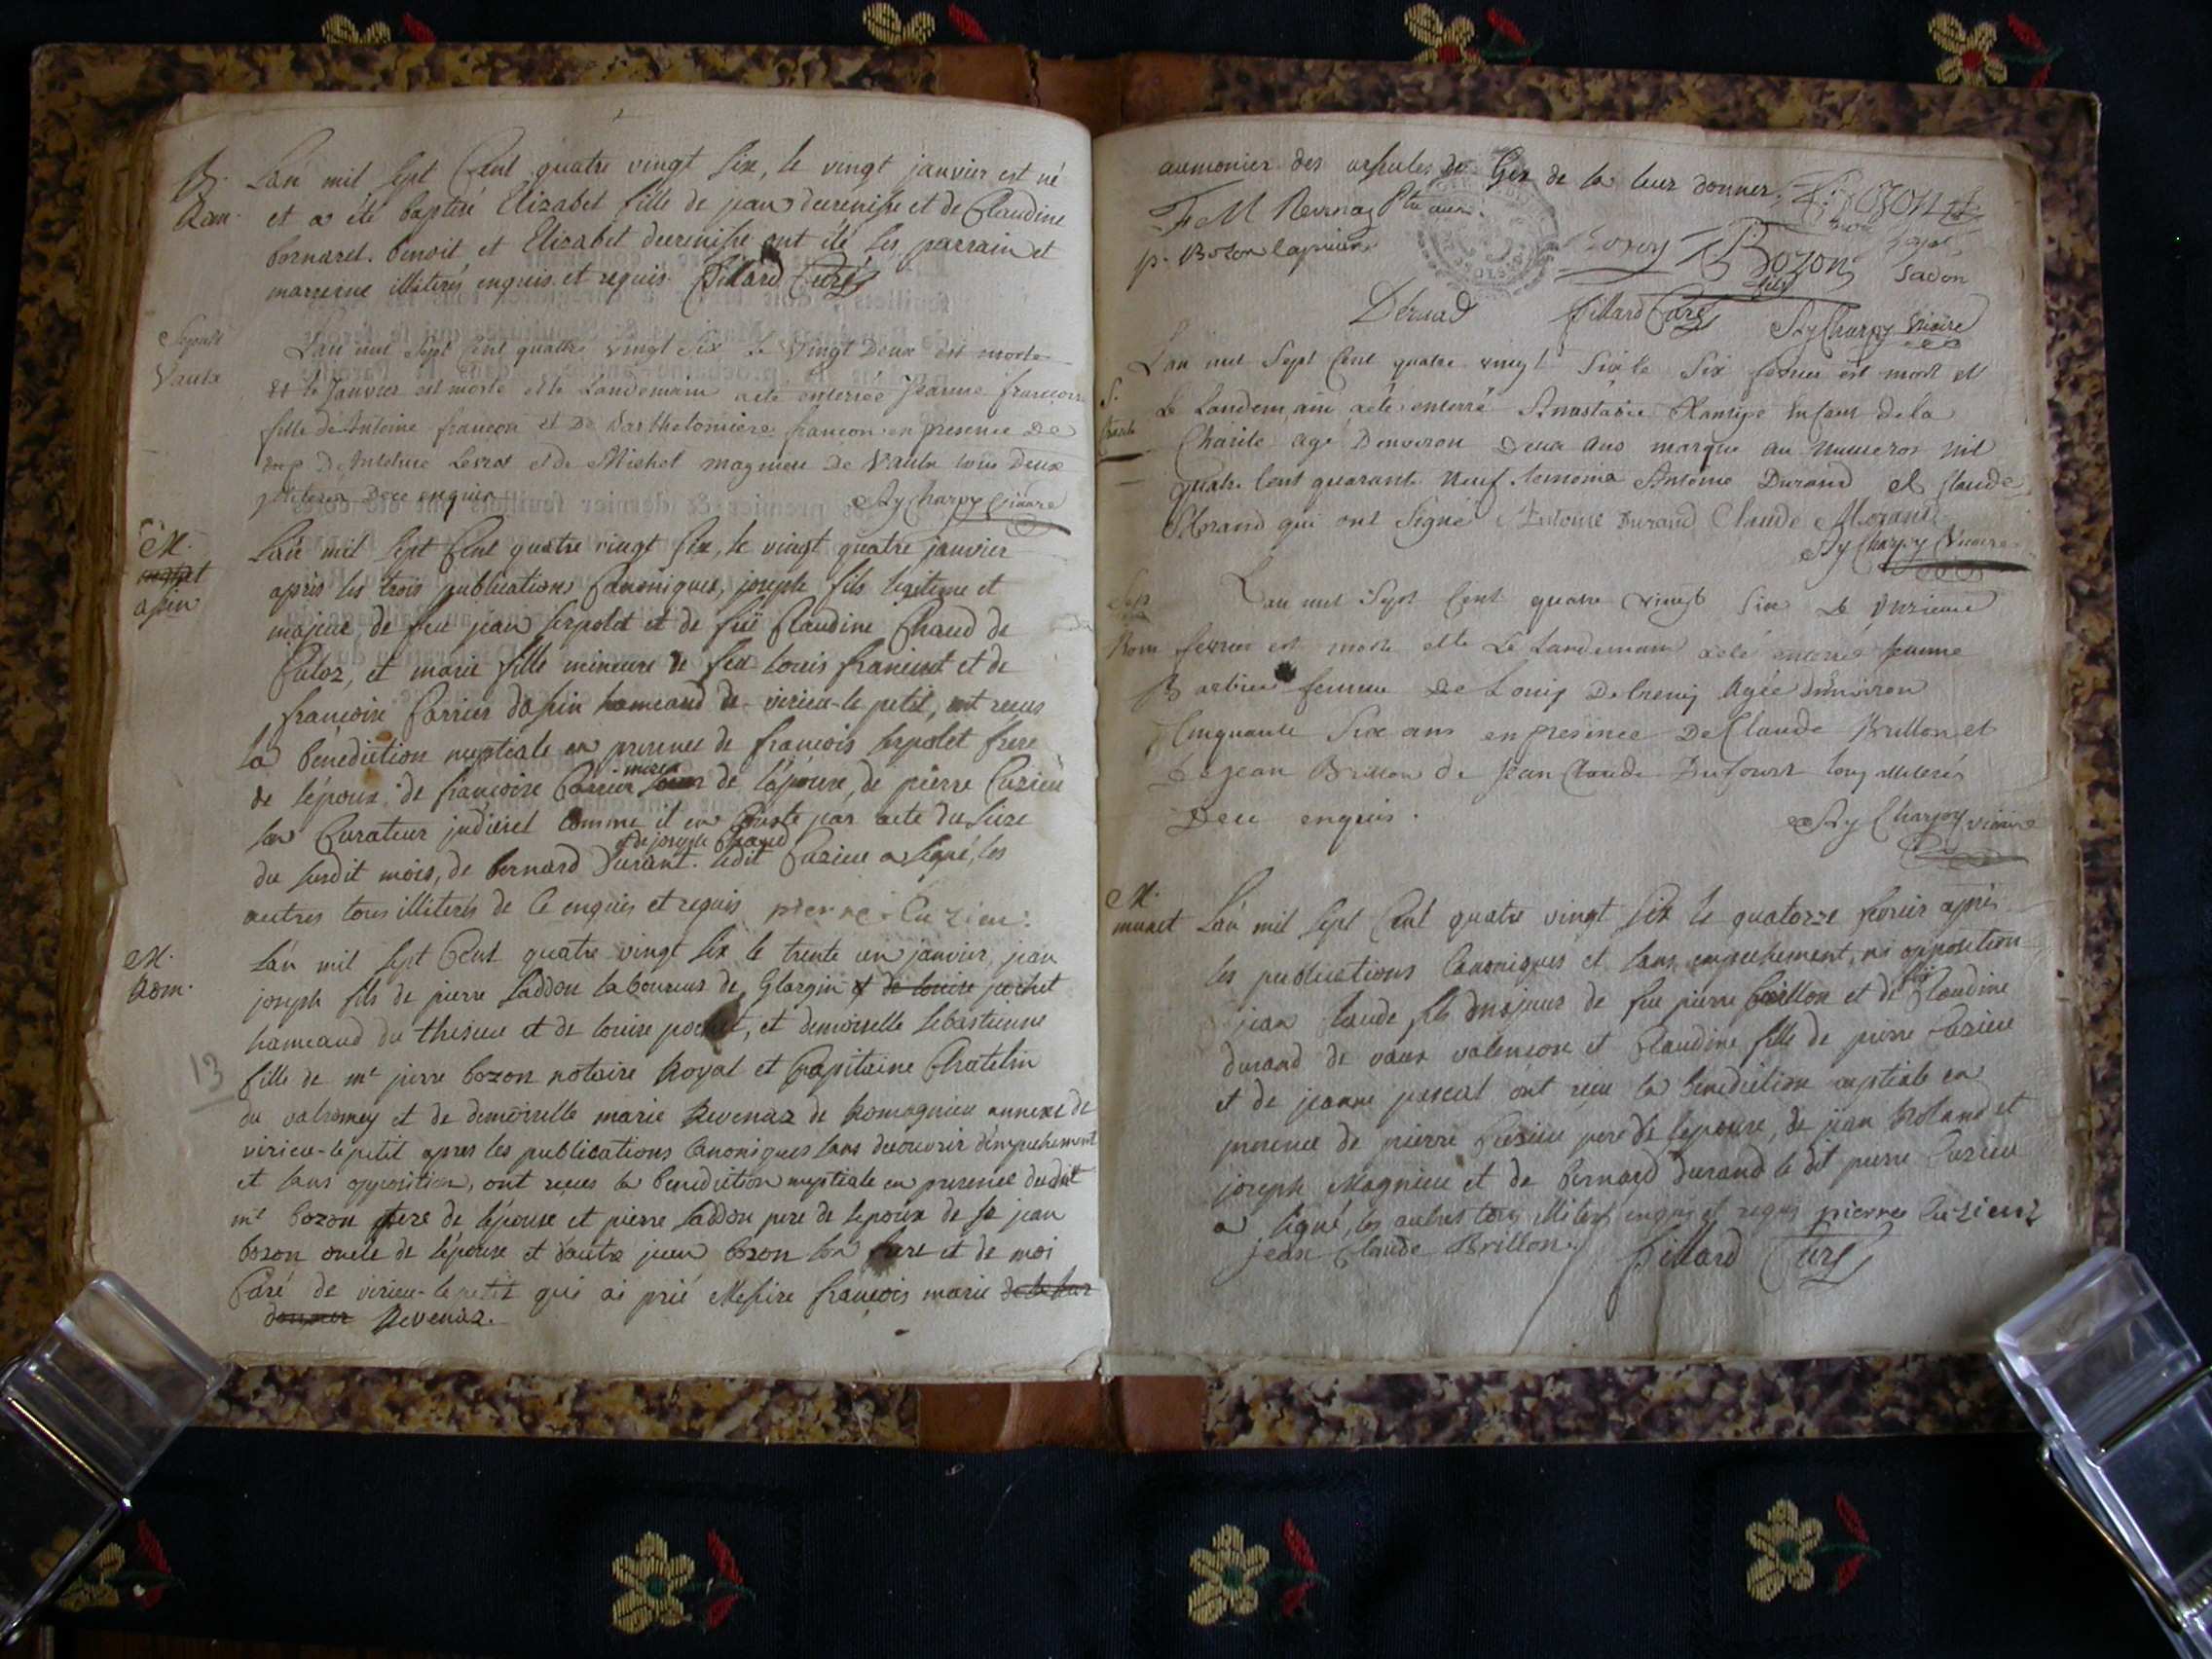 B.
Rom.
L'an mil sept Cent quatre vingt six, le vingt janvier est né
et a été baptisé Elizabet fille de jean decrenisse et de Claudine
bornaret. benoit et Elizabet decrenisse ont été les parrain et
marrenne illiterés enquis et requis. fillard Curé
Sepult
Vaula
L'an mil sept Cent quattre vingt six Le Vingt Deux est morte
Janvier est morte et le Landemain a eté enterrée Jeanne françoise
fille de Antoine françon et De Barthelomiere françon en presence De
De Antoine et de Michel magnieu De Vaula tous Deux
illiterés Dece enquis Ay Charpy Vicaire
M.
assin
L'an mil sept Cent quatre vingt six, le vingt quatre janvier
après les trois publications Canoniques, joseph fils legitime et
majeur, de feu jean serpolet et de füe Claudine Chaud de
Culoz, et marie fille mineure de feu Louis francinet et de
françoise Carrier dassin hameaud de virieu-le petit, ont reçus
la bénédiction nuptiale en presence de françois serpolet frere
de l'époux, de françoise Carrier mere de l'épouse, de pierre Cuzieu
son Curateur judiciel Comme il en Conste par acte du seize
et de joseph Chaud
du susdit mois, de bernard Durant. ledit Cuzieu a signé, les
autres tous illiterés de Ce enquis et requis pierre Cuzieu.
M.
Rom.
L'an mil sept Cent quatre vingt six le trente un janvier, jean
joseph fils de pierre saddon laboureur de Glargin et de louise pochet
hameaud du thesieu et de louise pochet, et demoiselle sebastienne
13
fille de me pierre bozon notaire Royal et Capitaine Chatelin
du valromey et de demoiselle marie Revenaz de Romagnieu annexe de
virieu-le petit apres les publications Canoniques sans decouvrir d'empechement
et sans opposition, ont reçues la benediction nuptiale en presence dudit
me bozon pere de l'épouse et pierre saddon pere de lepoux de sr jean
bozon oncle de l'épouse et d'autre jean bozon son frere et de moi
Curé de virieu-le petit qui ai prié Messire françois marie de la leur
donner Revenaz.
aumonier des ursules de Gex de la leur donner. Bozon
F M Revenaz Ptre aum.
p. Bozon lapriere Bozon fils Sadon
Deruad fillard Curé Ay Charpy Vicaire
S.
L'an mil Sept Cent quatre vingt Six le Six fevrier est mort et
Le Landemain a eté enterré Anastasie Enfant de la
Charité agé D'environ Deux ans marqué au numeros mil
quatre Cent quarante Neuf temoins Antoine Durand et Claude
Morand qui ont Signé Antoine Durand Claude Morand
Ay Charpy Vicaire
Sep
Rom
L'an mil Sept Cent quatre vingt Six Le onzieme
fevrier est morte et le Landemain a eté enterrée jeanne
Barbier femme De Louis Decrenis Agée D'environ
Cinquante Six ans en presence De Claude Brillon et
De jean Brillon de Jean Claude Dufour tous illiterés
Dece enquis.
Ay Charpy vicaire
M.
munet
L'an mil sept Cent quatre vingt six le quatorze fevrier après
les publications Canoniques et sans empechement, ni opposition
jean Claude fils majeur de feu pierre brillon et de füe Claudine
durand de vaux valencon et Claudine fille de pierre Cuzieu
et de jeanne pascal ont reçu la benediction nuptiale en
presence de pierre Cuzieu pere de lepouse, de jean Roland et
joseph Magnieu et de bernard Durand le dit pierre Cuzieu
a signé, les autres tous illiterés enquis et requis pierre Cuzieuz
jean Claude Brillon. fillard Curé